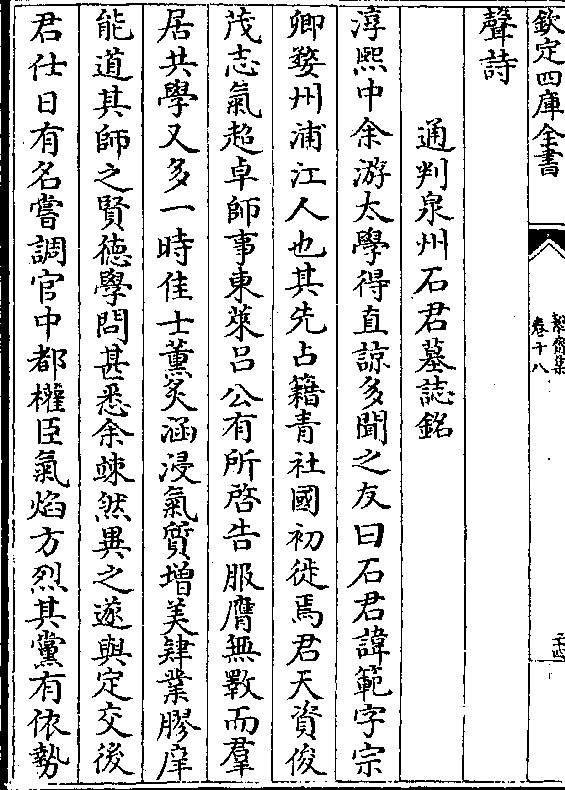 欽定四庫全書
絜齋集
卷十八
聲詩
通判泉州石君墓誌銘
淳熙中余游太學得直諒多聞之友曰石君諱範字宗
卿婺州浦江人也其先占籍青社國初徙焉君天資俊
茂志氣超卓師事東萊呂公有所啓告服膺無斁而羣
居共學又多一時佳士薰炙涵浸氣質增美肄業膠庠
能道其師之賢德學問甚悉余竦然異之遂與定交後
君仕日有名嘗調官中都權臣氣焰方烈其黨有依勢